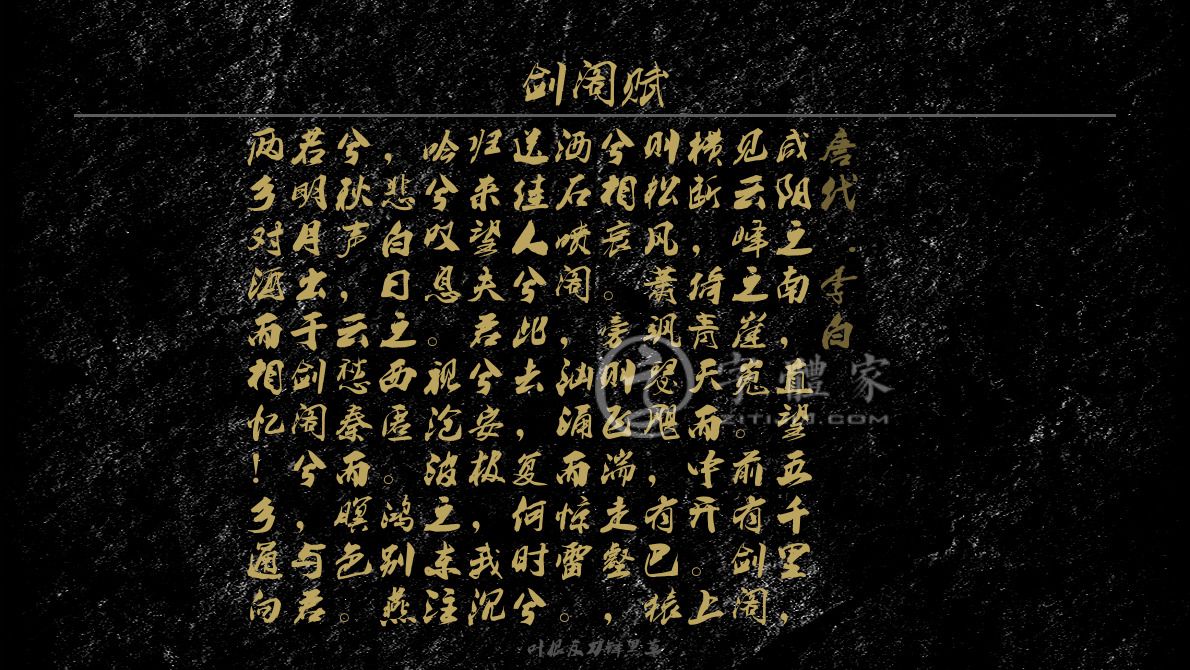 剑阁赋
唐代·李白
咸阳之南，直望五千里，
见云峰之崔嵬。前有剑阁
横断，倚青天而中开。上
则松风萧飒瑟飓，有巴猿
兮相哀。旁则飞湍走壑，
洒石喷阁，汹涌而惊雷。
送佳人兮此去，复何时兮
归来望夫君兮安极，我沉
吟兮叹息。视沧波之东注
，悲白日之西匿。鸿别燕
兮秋声，云愁秦而暝色。
若明月出于剑阁兮，与君
两乡对酒而相忆！乡通向
字體家
ZITIJIA.COM
叶根友刀锋黑草